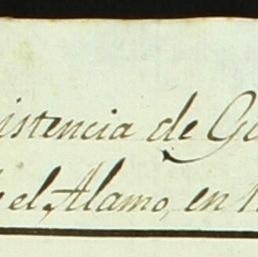 istencia de Gu
el Alamo, en 1